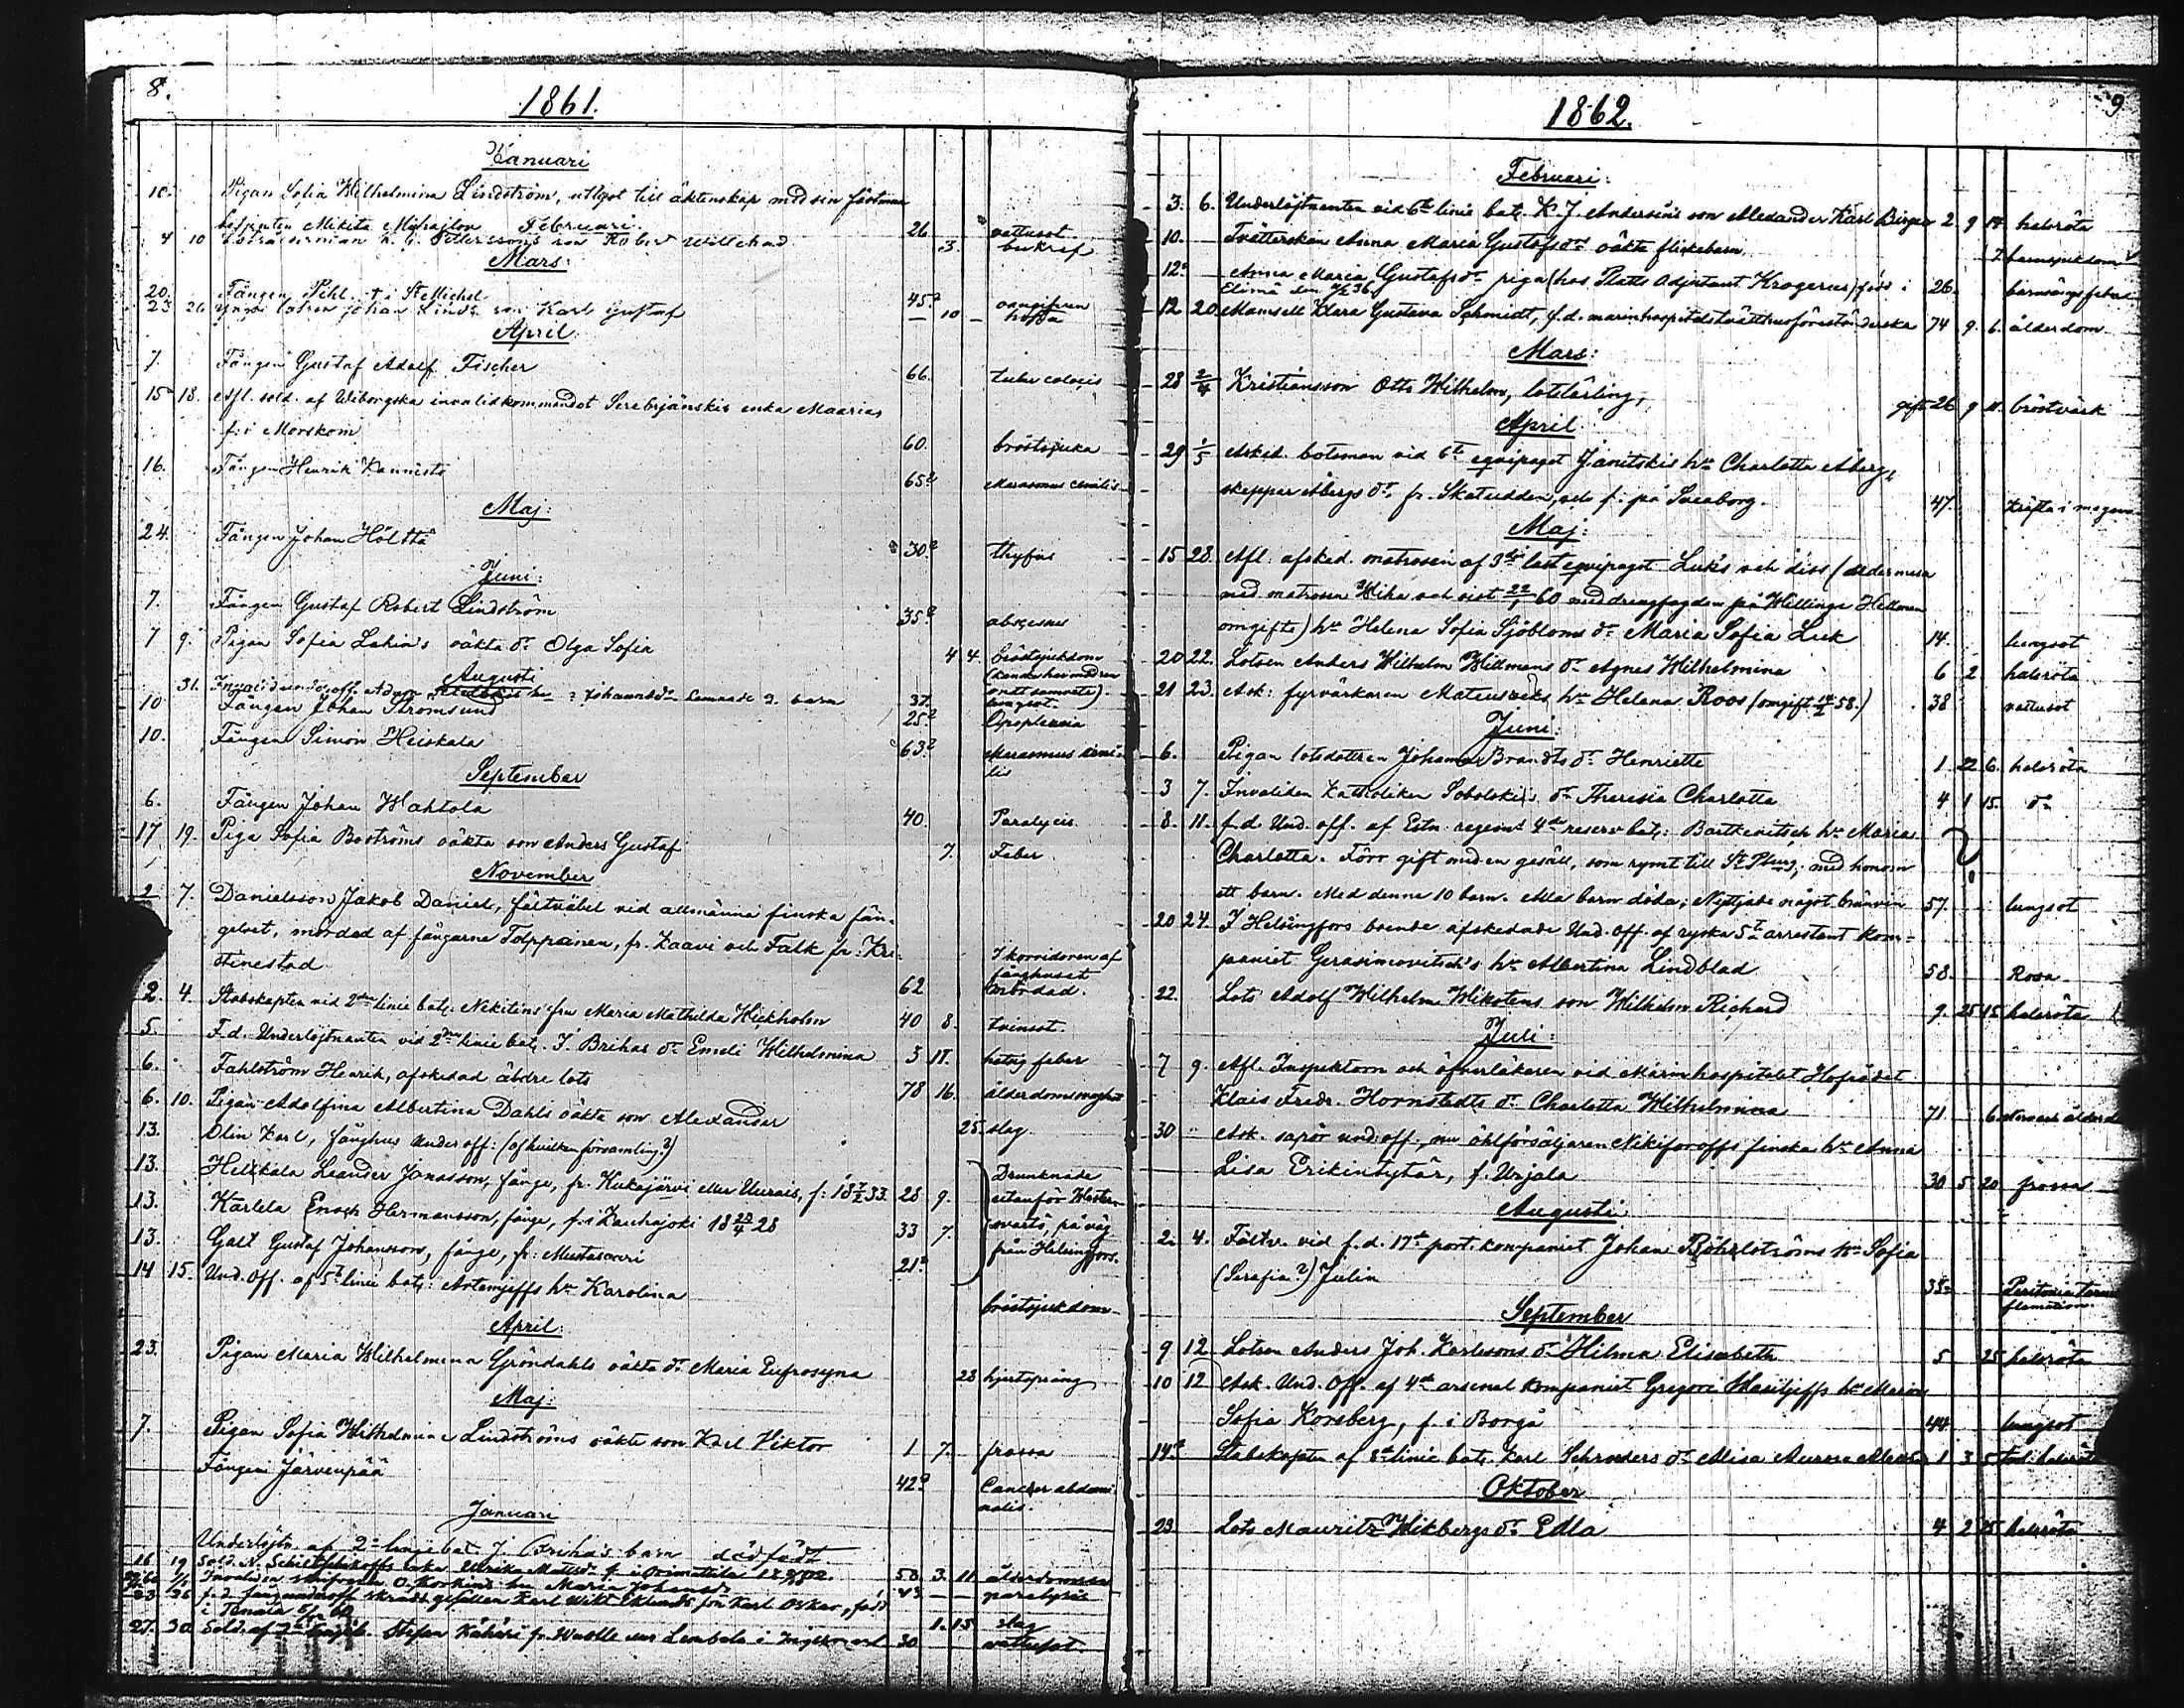 8.
1861.
Januari
10. Pigan Sofia Wilhelmina Lindström, uttagit till äktenskap med sin fästman
betjenten Mikita Mihailow 26 vattusot
Februari
4 10 Lotsålderman K. G. Petterssons son Robert Willehad 3. benkräf
Mars:
20. Fången Pihl. † i St Michel 45?
23 26 Yngre lotsen Johan Linds son Karl Gustaf — 10 — hosta
April
7. Fången Gustaf Adolf Fischer 66. tuberculosis
15 18. Afl. sold. af Wiborgska invalidkommandot Serebrjänskis enka Maaria,
f. i Morskom 60. bröstsjuka
16. Fången Henrik Kannisto 65? Marasmus senilis
Maj:
24. Fången Johan Hölttä 30? thyfus
Juni:
7. Fången Gustaf Robert Lindström 35? abscesus
7 9. Pigan Sofia Lahin's oäkta dr Olga Sofia 4 4. bröstsjukdom
Augusti
31. Invalid underoff. Adam hu ? Johansdr lemnade 2 barn 37. lungsot
10 Fången Johan Strömsund 25? Apoplexia
10. Fången Simon Heiskala 63? Marasmus seni-
lis
September
6. Fången Johan Wahtola 40. Paralysis
17 19. Piga Sofia Boströms oäkta son Anders Gustaf 7. Feber
November
2 7. Danielsson Jakob Daniel, fältväbel vid allmänna finska fän-
gelset, mördad af fångarne Tolppainen, fr. Kaavi och Falk fr. Kri-
stinestad 62 I korridoren af
fånghuset
mördad.
2. 4. Stabskapten vid 2dra linie batj. Nekitins fru Maria Mathilda Wickholm 40 8. tvinsot.
5. F.d. Underlöjtnanten vid 2dra linie batj. J. Brihas dr Emeli Wilhelmina 3 11. hetsig feber
6. Fahlström Henrik, afskedad äldre lots 78 16. ålderdomssvaghet
6. 10. Pigan Adolfina Albertina Dahls oäkta son Alexander 25 slag.
13. Olin Karl, fånghus underoff: (af hvilken församling?)
13. Hellkala Leander Jonasson, fånge, fr. Kukajärvi eller Uurais, f. 18 7/2 33. 28 9. Drunknade
utanför Wester-
13. Karlela Enoch Hermansson, fånge, f. i Kauhajoki 18 23/4 28 33 7. svartö, på väg
13. Galt Gustaf Johansson, fånge, fr. Mustasaari 21? från Helsingfors.
14 15. Und. Off. af 5te linie batj: Artemjeffs hu Karolina bröstsjukdom
April:
23. Pigan Maria Wilhelmina Gröndahls oäkta dr Maria Eufrosyna 28 hjertsprång
Maj:
7. Pigan Sofia Wilhelmina Lindströms oäkta son Karl Viktor 1 7. frossa
Fången Järvenpää 42? Cancer abdomi
nalis.
Januari
Underlöjtn. af 2a linjebat. J. Brihas barn dödfödt
16 19 Sold. N. enka Ulrika Mattsdr f. i Orimattila 58 3. 11 ålderdoms
O. Korkins hu Maria Johansdr 43 — — paralysis
23 26 f.d. fång underoff. Karl Wikt. Eklunds son Karl Oskar, född
i Tenala 1. 15 slag
27. 30 Sold. af Stefan Kähäri fr. Wuolle eller Lembala i 30 vattusot
9
1862.
Februari:
3. 6. Underlöjtnanten vid 6te linie batj. K. J. Andersins son Alexander Karl Birger 2 9 14 halsröta
10. Tvätterskan Anna Maria Gustafsdrs oäkta flickebarn 7 barnsjukdom
12. Anna Maria Gustafsdr piga (hos Platts Adjutant Krogerus) född i
Elimä den 36. 26. barnsängsfeber
12 20. Mamsell Klara Gustava Schmidt, f.d. marinhospitalstvätthusföreståndarska 74 9. 6. ålderdom
Mars:
28 2/4 Kristiansson Otto Wilhelm, lotslärling, gift 26 9 11. bröstvärk
April
29 1/5 Asked. botsman vid 6te eqvipaget Janitskis hu Charlotta Åberg,
skeppar Åbergs dr, fr. Skatudden, f. på Sveaborg. 47. kräfta i magen
Maj:
15 28. Afl: afsked. matrosen af 3dje last eqvipaget Luk's och dess (sedermera
med matrosen Wiha och sist 22/1 60 med drengfogden på Willinge Hellmen
omgifte) hu Helena Sofia Sjöbloms dr Maria Sofia Luk 14. lungsot
20 22. Lotsen Anders Wilhelm Willmans dr Agnes Wilhelmina 6 2 halsröta
21 23. Ask: fyrvärkaren Mateuszeks hu Helena Roos (omgift 14/2 58.) 38 vattusot
Juni:
6. Pigan lotsdottren Johanna Brandts dr Henriette 1. 22 6. halsröta
3 7. Invaliden Katholiken Sobolskis dr Theresia Charlotta 4 1 15. do
8. 11. f.d. Und. off. af Estn. regem. 4de reserv batj: Bartkevitsch hu Maria
Charlotta. Förr gift med en gesäll, som rymt till St Pburg, med honom
ett barn. Med denne 10 barn. Alla barn döda; Nyttjade något brännvin 57. lungsot
20 24. I Helsingfors boende afskedade Und. Off. af ryska 5te arrestant kom-
paniet Gerasimovitsch's hu Albertina Lindblad 58. Rosa
22. Lots Adolf Wilhelm Wikstens son Wilhelm Richard 9. 25 15 halsröta
Juli:
7 9. Afl. Inspektorn och öfverläkaren vid Marinhospitalet Hofrådet
Klais Fredr. Hornstedts dr Charlotta Wilhelmina 71 6
30 Ask. sapör und: off., nu öhlförsäljaren Nikiforoffs finska hu Anna
Lisa Erikintytär, f. Urjala 30 5 20 frossa
Augusti
2. 4. Fältv. vid f.d. 17de port. kompaniet Johan Röhrströms hu Sofia
(Serafia?) Julin 35.
September
9 12. Lotsen Anders Joh. Karlssons dr Hilma Elisabeth 5 25 halsröta
10 12 Ask. Und. Off. af 4de arsenal kompaniet Gregori Wasiljeffs hu Maria
Sofia Korsberg, f. i Borgå 44. lungsot
14 Stabskapten af 8de linie batj. Karl Schroeders dr Alisa Aurora 1 3 5
Oktober
23 Lots Mauritz Wikbergs dr Edla 4 2 25 halsröta